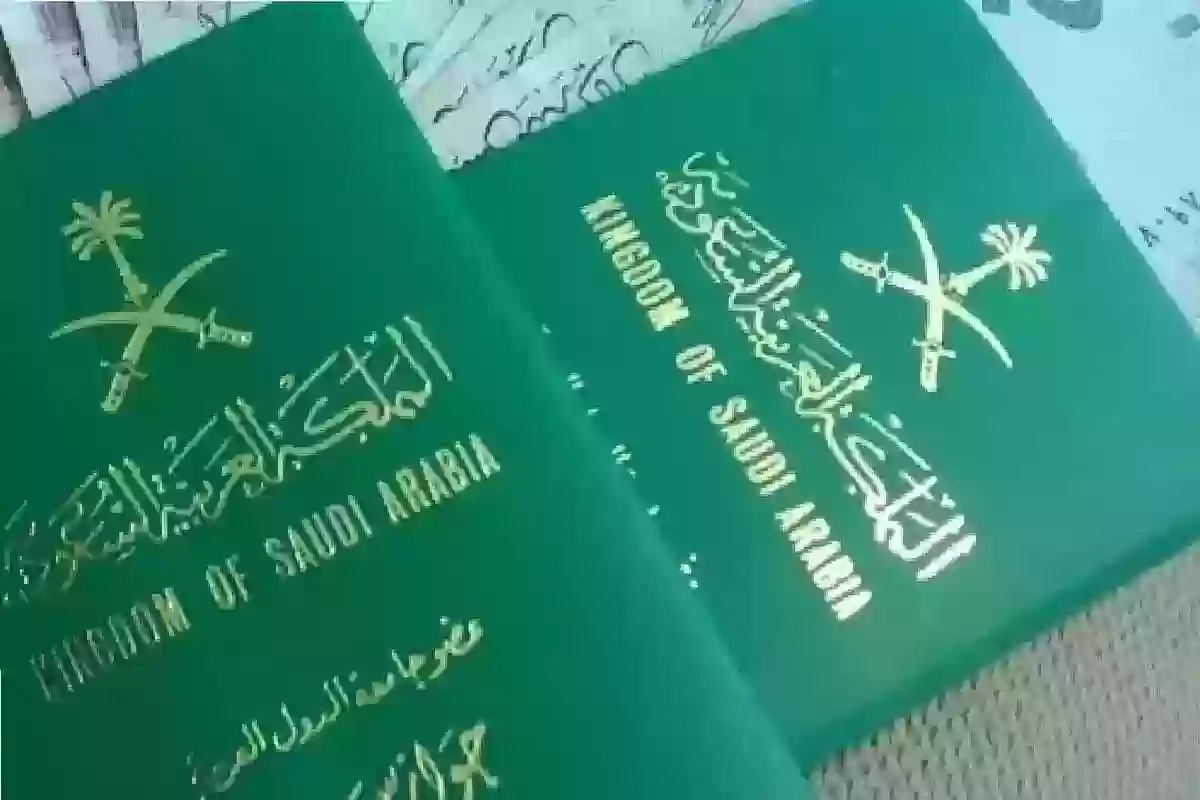 المملكة العربية السعودية
KINGDOM OF SAUDI ARABIA
عضو جامعة الدول العربية
المملكة العربية السعودية
KINGDOM OF SAUDI ARABIA